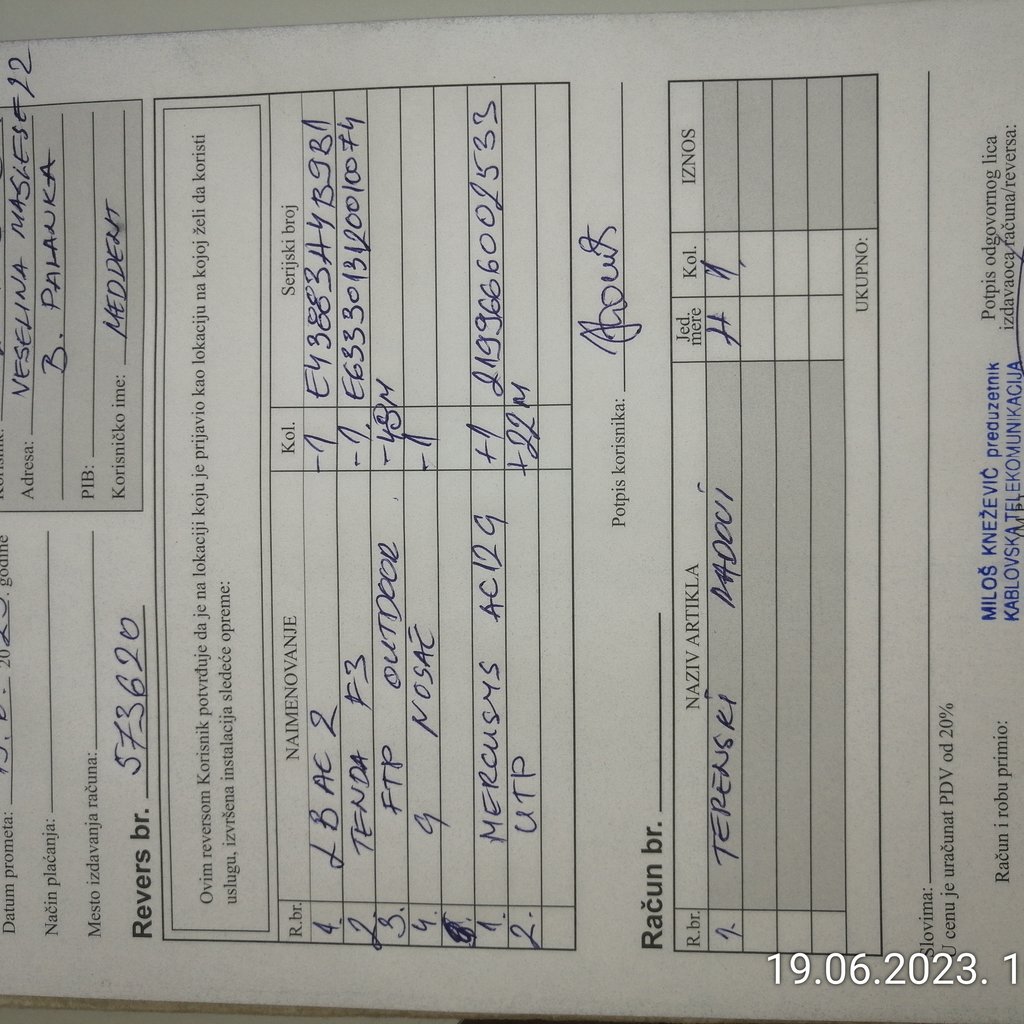 Datum prometa: godine
Način plaćanja:
Mesto izdavanja računa:
Adresa: VESELINA MASLEŠE 22
B. PALANKA
PIB:
Korisničko ime: MEDDENT
Revers br. 573620
Ovim reversom Korisnik potvrđuje da je na lokaciji koju je prijavio kao lokaciju na kojoj želi da koristi
uslugu, izvršena instalacija sledeće opreme:
R.br. NAIMENOVANJE Kol. Serijski broj
1. LB AC 2 -1 E43883A4B9B1
2. TENDA F3 -1 E6333013120010074
3. FTP OUTDOOR -48M
4. G NOSAČ -1
1. MERCUSYS AC12G +1 2199666002533
2. UTP +22M
Potpis korisnika:
Račun br.
R.br. NAZIV ARTIKLA Jed. mere Kol. IZNOS
1. TERENSKI RADOVI H 1
UKUPNO:
Slovima:
U cenu je uračunat PDV od 20%
Račun i robu primio:
Potpis odgovornog lica
izdavaoca računa/reversa:
MILOŠ KNEŽEVIĆ preduzetnik
KABLOVSKA TELEKOMUNIKACIJA
19.06.2023. 1